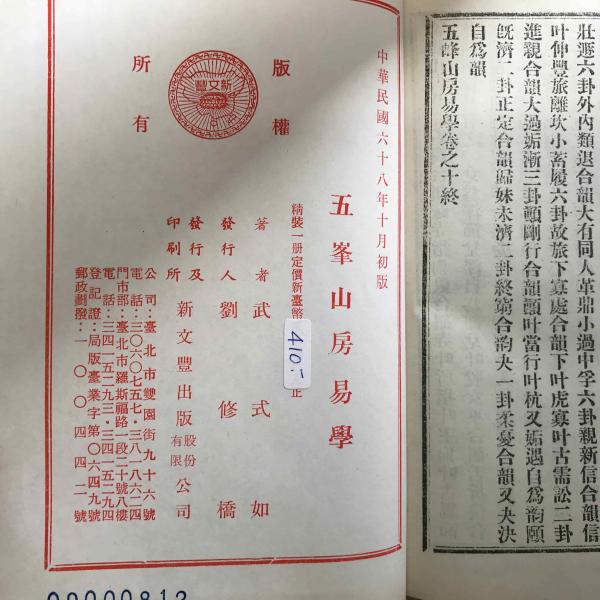 壯遯六卦外內類退合韻大有同人革鼎小過中孚六卦親新信合韻信
叶伸豐旅離坎小畜履六卦故旅下寡處合韻下叶虎寡叶古需訟二卦
進親合韻大過姤漸三卦顚剛行合韻顚叶當行叶杭又姤遇自爲韻頤
旣濟二卦正定合韻歸妹未濟二卦終窮合韵夬一卦柔憂合韻又夬決
自爲韻
五峰山房易學卷之十終
中華民國六十八年十月初版
版權
所有
新文豐
五峯山房易學
精裝一册定價新臺幣
正
410.-
著者武式如
發行人劉修橋
發行及
印刷所
新文豐出版股份有限公司
公司：臺北市雙園街九十六號
電話：三〇六〇七五七・三八一八六二四
門市部：臺北市羅斯福路一段二十號八樓
電話：三四一五二九三・三四一五二九四
登記證：局版臺業字第〇六四九號
郵政劃撥：一〇〇四四二號
09000812